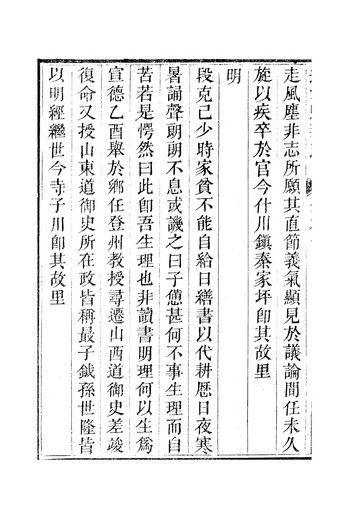 走風塵非志所願其直節義氣顯見於議論間任未久
旋以疾卒於官今什川鎮秦家坪卽其故里
明
段克己少時家貧不能自給日繕書以代耕歷日夜寒
暑誦聲朗朗不息或譏之曰子憊甚何不事生理而自
苦若是愕然曰此卽吾生理也非讀書明理何以生爲
宣德乙酉舉於鄉任登州教授尋遷山西道御史差竣
復命又授山東道御史所在政皆稱最子鉞孫世隆皆
以明經繼世今寺子川卽其故里